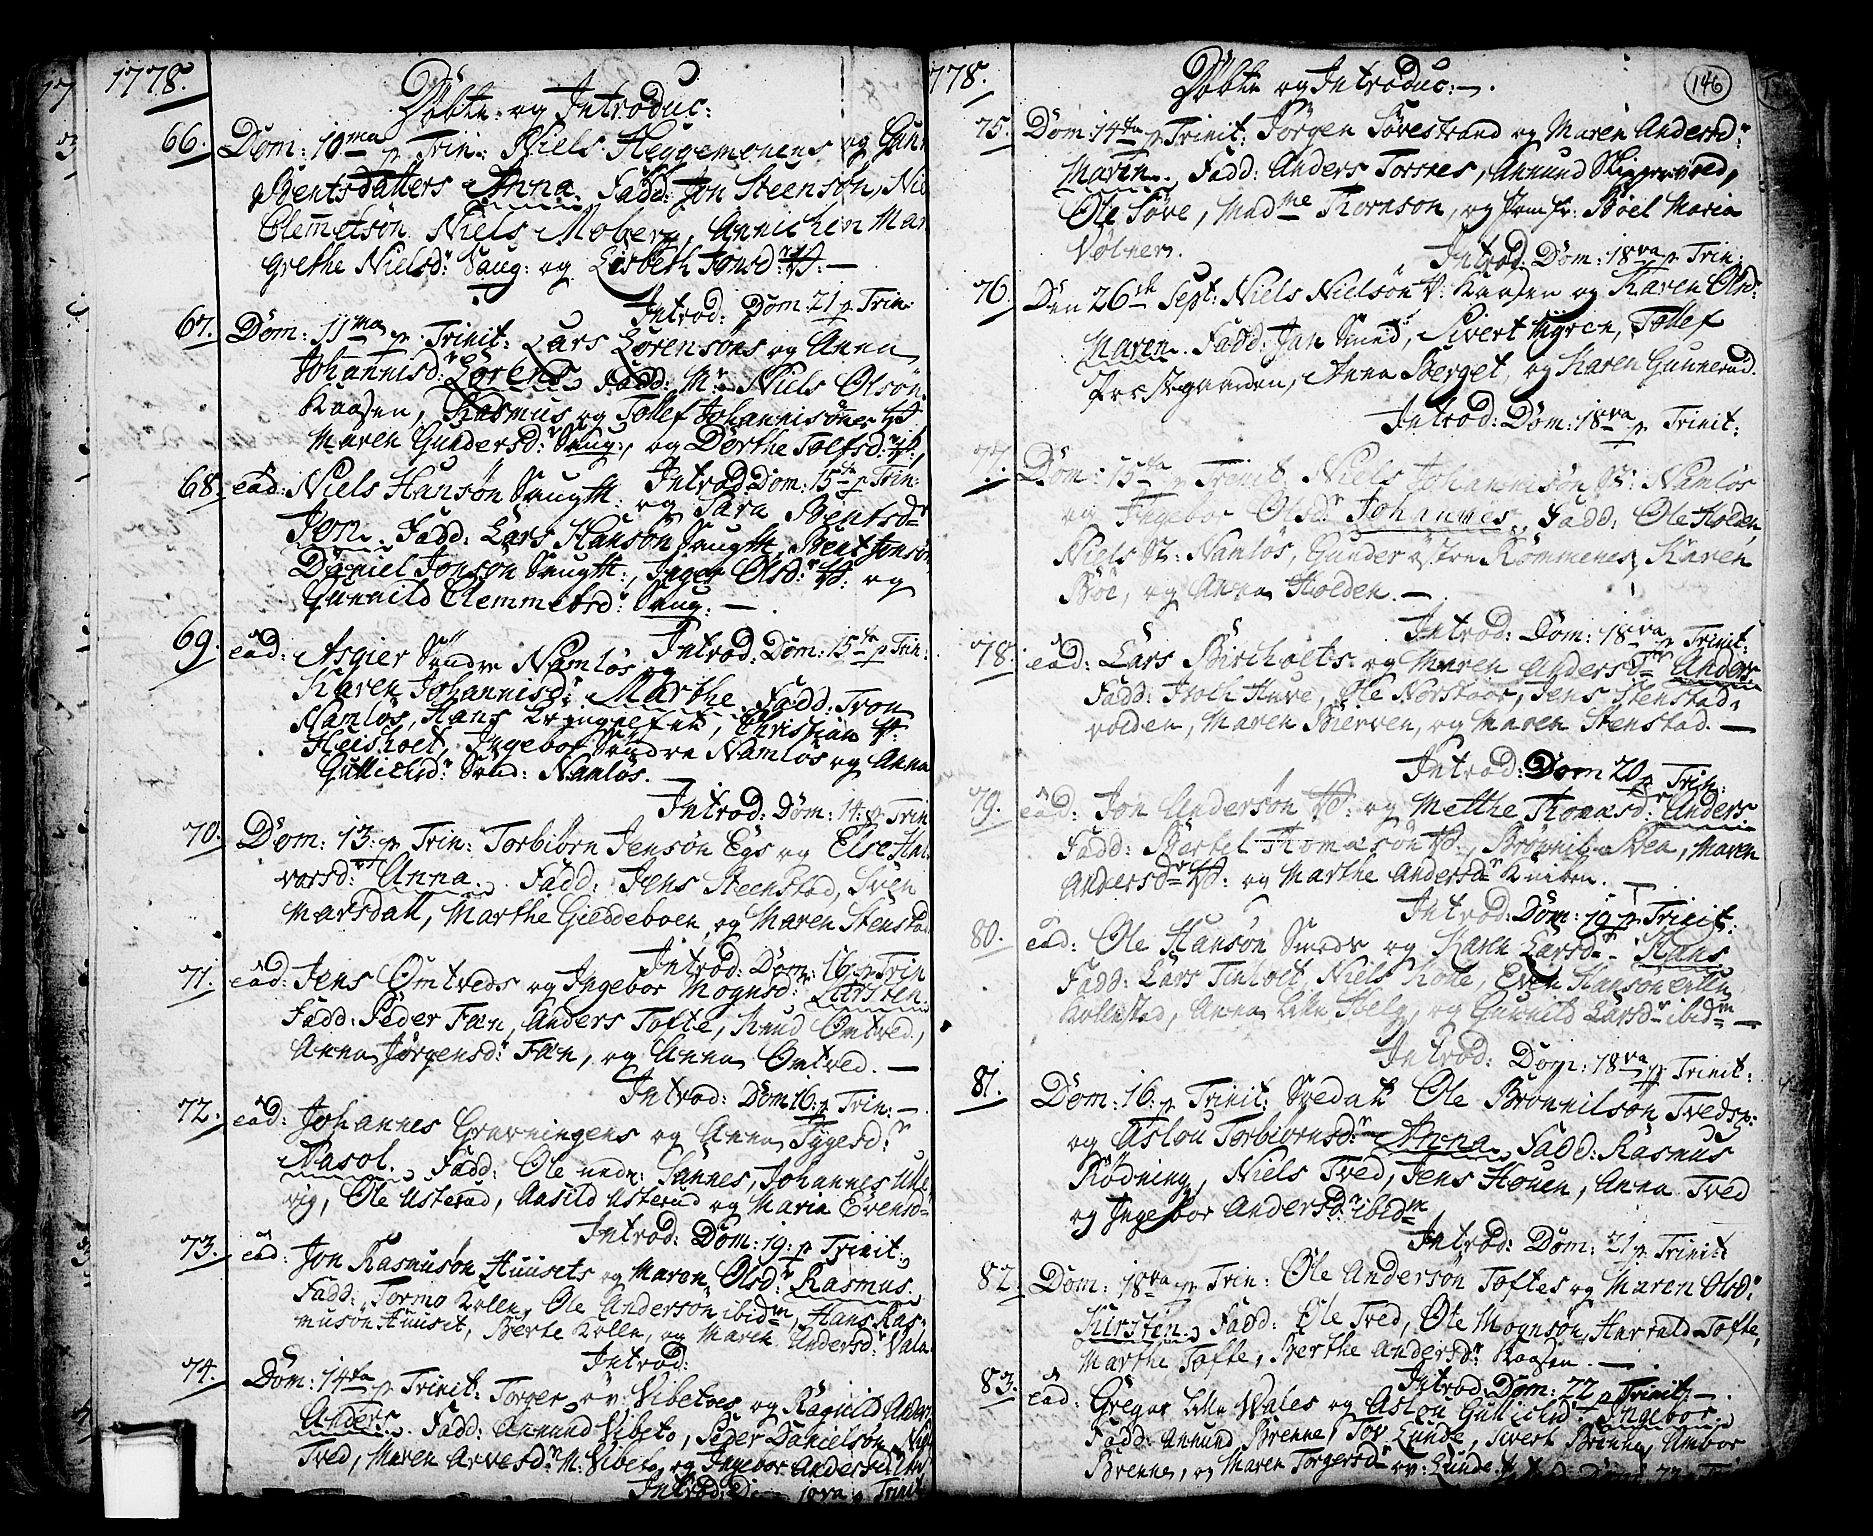 1778.
Döbte og Introduc:
66. Dom: 10ma p Trin: Niels Heggemonens og Gun
Bentsdatters Anna. Fadd: Jon Steensön, Nie
Clemmetsön Niels Moberg, Annichen Mar
grethe Nielsd: Saug: og Lisbeth Jonsd:
Introd: Dom 21 p Trin:
67. Dom: 11ma p Trinit: Lars Lorensöns og Anna
Johannisd: Lorens. Fadd: Mr Niels Olsön
Kaasen, Rasmus og Tollef Johannisöner
Maren Gundersd: Saug:, og Dorthe Tolfsd:
Introd: Dom: 15te p Trin:
68. ead: Niels Hansön Saugtt: og Sara Bentsdr
Jon. Fadd: Lars Hansön Saugtt, Bent Jonsön
Daniel Jonsön Saugtt:, Inger Olsd: og
Gunnild Clemmetsd: Saug. —
Introd: Dom: 15te p Trin:
69. ead: Asgier Söndre Namlös og
Karen Johannisd: Marthe. Fadd: Tron
Namlös, Hans, Christian
Heisholt, Ingebor Söndre Namlös og Anna
Gullichsd: Sönd: Namlös.
Introd: Dom: 14: p Trin
70. Dom: 13: p Trin: Torbiörn Jensön Egs og Else Hal
vorsd: Anna. Fadd: Jens Steenstad, Sven
Marsdatt, Marthe Gieddeboen, og Maren Stenstad
Introd: Dom: 16. p Trin
71. ead: Jens Omtveds og Ingebor Mognsd: Kirsten.
Fadd: Peder Fæn, Anders Tofte, Knud Omtved,
Anna Jörgensd: Fæn, og Anna Omtved. —
Introd: Dom 16: p Trin: —
72. ead: Johannes Gravningens og Anna Tygesd:
Aasol. Fadd: Ole nedr: Sannes, Johannes Ulle
vig, Ole Usterud, Aasild Usterud og Maria Evensd
Introd: Dom: 19: p Trinit:
73. ead: Jon Rasmusön Huusets og Maren Olsd: Rasmus.
Fadd: Tormo Kolle, Ole Andersön ibidm, Hans Ras-
musön Huuset, Berte Kolle, og Maren Andersd: Vala
Introd:
74. Dom: 14ta p Trinit: Torger öv: Vibetoes og Ragnild Ander
Anders. Fadd: Annund Vibeto, Peder Danielsön,
Tved, Maren Arvesd: M: Vibeto, og Ingebor Andersd:
Introd: D 18va p Trinit
778.
Döbte og Introduc: —.
146
75. Dom: 14ta p Trinit: Jörgen Sövestrand og Maren Andersd:
Maren. Fadd: Anders Torsnes, Annund Skippervred,
Ole Söve, Madme Thomson, og Jomfr: Böel Maria
Völner.
Introd: Dom: 18va p Trin:
76. Den 26de Sept: Niels Nielsön Kaasen og Karen Olsd:
Maren. Fadd: Jan Smed, Sivert Myren, Tollef
Præstgaarden, Anna Berget, og Karen Gunnerud.
Introd: Dom: 18va p Trinit:
77. Dom: 15ta p Trinit. Niels Johannisön St: Namlös
og Ingebor Olsdr: Johannes. Fadd: Ole Holden,
Niels St: Namlös, Gunder östre Kommenes, Karen
Böe, og Anna Holden. —
Introd: Dom: 18va p Trinit:
78. ead: Lars Bircholts og Maren Andersdr Anders
Fadd: Huve, Ole Norstaae, Jens Stenstad-
volden, Maren Bierven, og Maren Stenstad. —
Introd: Dom 20 p Trin:
79. ead: Jon Andersön og Methe Thomasd: Anders.
Fadd: Bertel Thomasön, Brönnil Moen, Maren
Andersdr og Marthe Andersdr Kneben. —
Introd: Dom: 19 p Trinit:
80. ead: Ole Hansön Smeds og Karen Larsd: Hans
Fadd: Lars Tinholt, Niels Kohe, Even Hansön
Kolkstad, Anna Lille Sælg, og Gunnild Larsd ibidm —
Introd: Dom: 18va p Trinit:
81. Dom: 16: p Trinit: Sredatt Ole Brönnilsön Tveds
og Aslou Torbiörnsd: Anna. Fadd: Rasmus
Rödning, Niels Tved, Jens Houen, Anna Tved
og Ingebor Andersd: ibidm
Introd: Dom: 21 p Trinit
82. Dom: 18va p Trin: Ole Andersön Toftes og Maren Olsd:
Kirstin. Fadd: Ole Tved, Ole Mognsön, Harrald Tofte,
Marthe Tofte, Berthe Andersd: Kaasen. —
Introd: Dom: 22 p Trinit —.
83. ead: Gregar Lille Vales og Aslou Gullichsd: Ingebor.
Fadd: Annund Brenne, Tov Lunde, Sivert Brenne, Anbor
Brenne, og Maren Torgersd öv: Lunde.